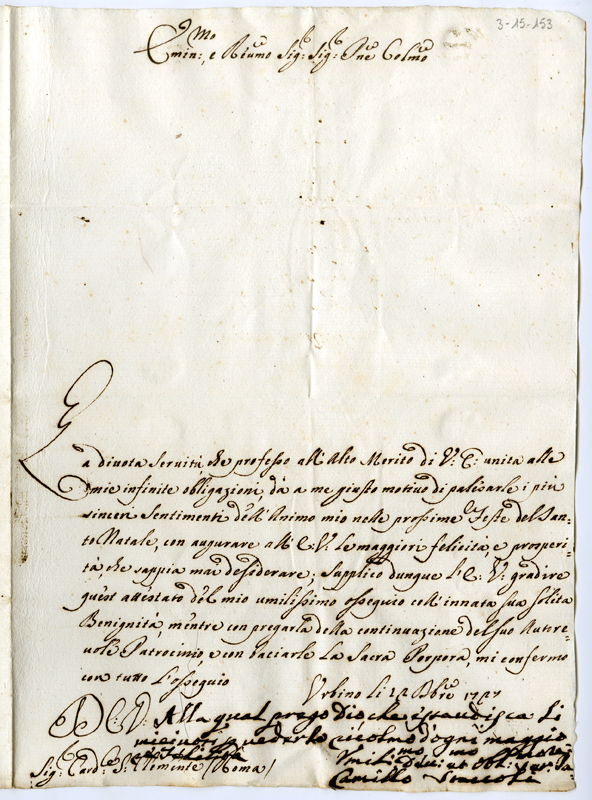 3-15-153
Emin:mo e Reumo Sig:r Sig:r Pne Colmo
La divota servitù, che professo all'Alto Merito di V: E: unita alle
mie infinite obligazioni, dà a me giusto motivo di palesarle i più
sinceri sentimenti dell'Animo mio nelle prossime Feste del San-
to Natale, con augurare all'E: V: le maggiori felicità, e prosperi-
tà, che sappia mai desiderare; Supplico dunque l'E: V: gradire
quest'attestato del mio umilissimo ossequio coll'innata sua solita
Benignità, mentre con pregarla della continuazione del suo Autore-
vole Patrocinio, e con baciarle la Sacra Porpora, mi confermo
con tutto l'ossequio
Urbino li 12 Xbre 1727
D: E: V: Alla qual prego Dio che esaudisca li
miei di vederlo colmo d'ogni maggio
Sig: Card: S: Clemente (Roma)
Umil:mo Dev:mo et Obl:mo
Camillo Staccoli